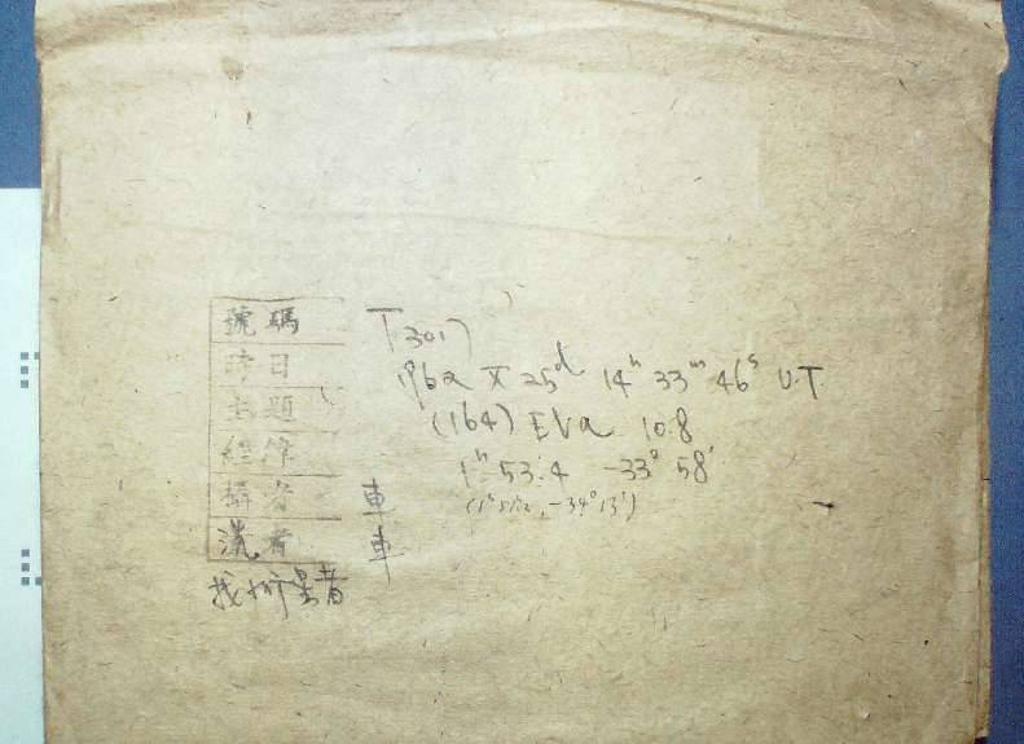 號碼 T3017
時日 1962 X 25ᵈ 14ʰ 33ᵐ 46ˢ U.T
主題 (164) Eva 10.8
經緯 1ʰ 53.4 -33° 58'
攝者 車
洗者 車
找 星者